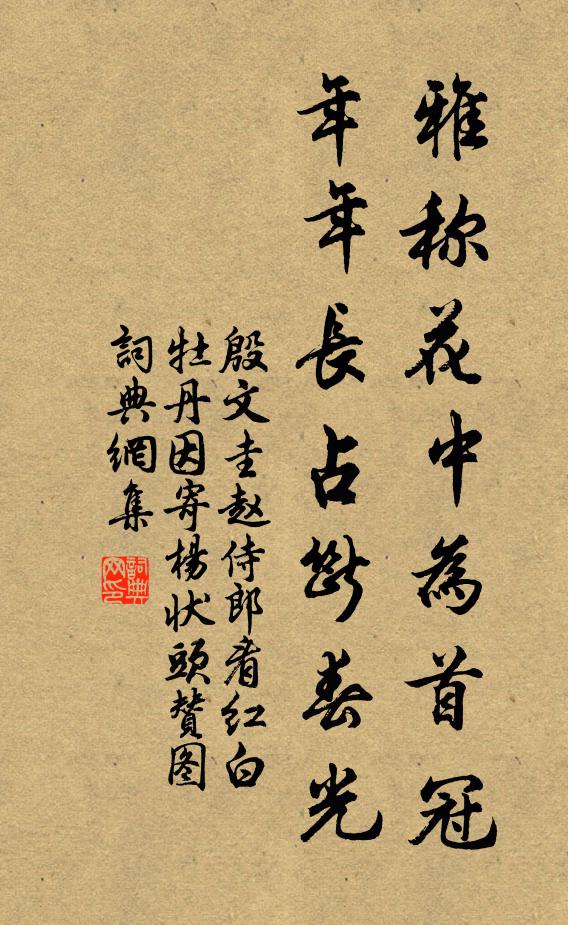 雅称花中為首冠
年年長占斷春光
殷文圭赵侍郎看红白
牡丹因寄楊状頭賛图
詞典網集
詞典网印